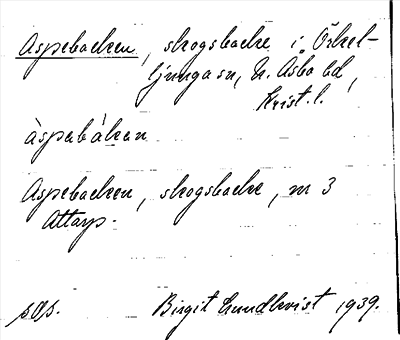 Aspebacken, skogsbacke i Örkel-
ljunga sn, N. Åsbo hd,
Krist. l.
àspabákan
Aspebacken, skogsbacke, m 3
Attarp.
Birgit Lundkvist 1939.